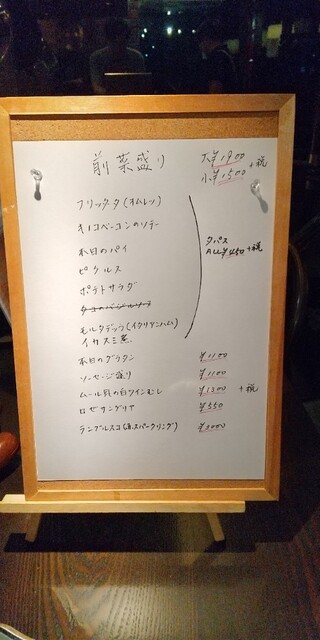 前菜盛り 大¥1900 +税
小¥1500
フリッタータ(オムレツ)
キノコベーコンのソテー
本日のパイ
タパス
ALL¥450+税
ピクルス
ポテトサラダ
タコのバジルソース
モルタデッラ(イタリアンハム)
イカスミ煮
本日のグラタン ¥1100
ソーセージ盛り ¥1100
ムール貝の白ワインむし ¥1300 +税
ロゼサングリア ¥550
ランブルスコ(赤スパークリング) ¥3000